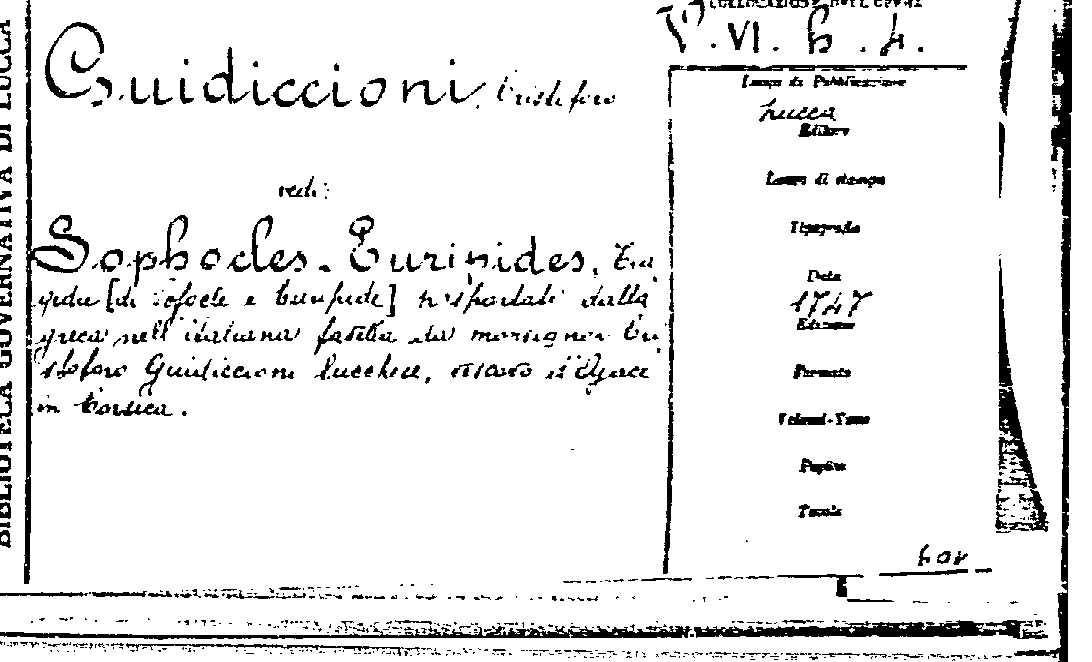 BIBLIOTECA GOVERNATIVA DI LUCCA
COLLOCAZIONE DELL'OPERA
P. VI. b. 4.
Guidiccioni, Cristoforo
vedi:
Sophocles. Euripides. Tra
gedie [di Sofocle e Euripide] trasportate dalla
greca nell'italiana favella da monsignor Cri
stoforo Guidiccioni lucchese, vescovo d'Ajace
in Corsica.
Luogo di Pubblicazione
Lucca
Editore
Luogo di stampa
Tipografia
Data
1747
Edizione
Formato
Volumi-Tomo
Pagine
Tavole